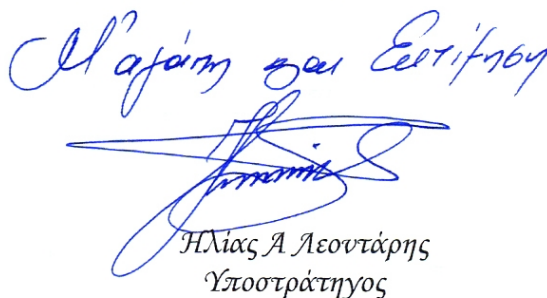 Μ' αγάπη και Εκτίμηση
Ηλίας Α Λεοντάρης
Υποστράτηγος